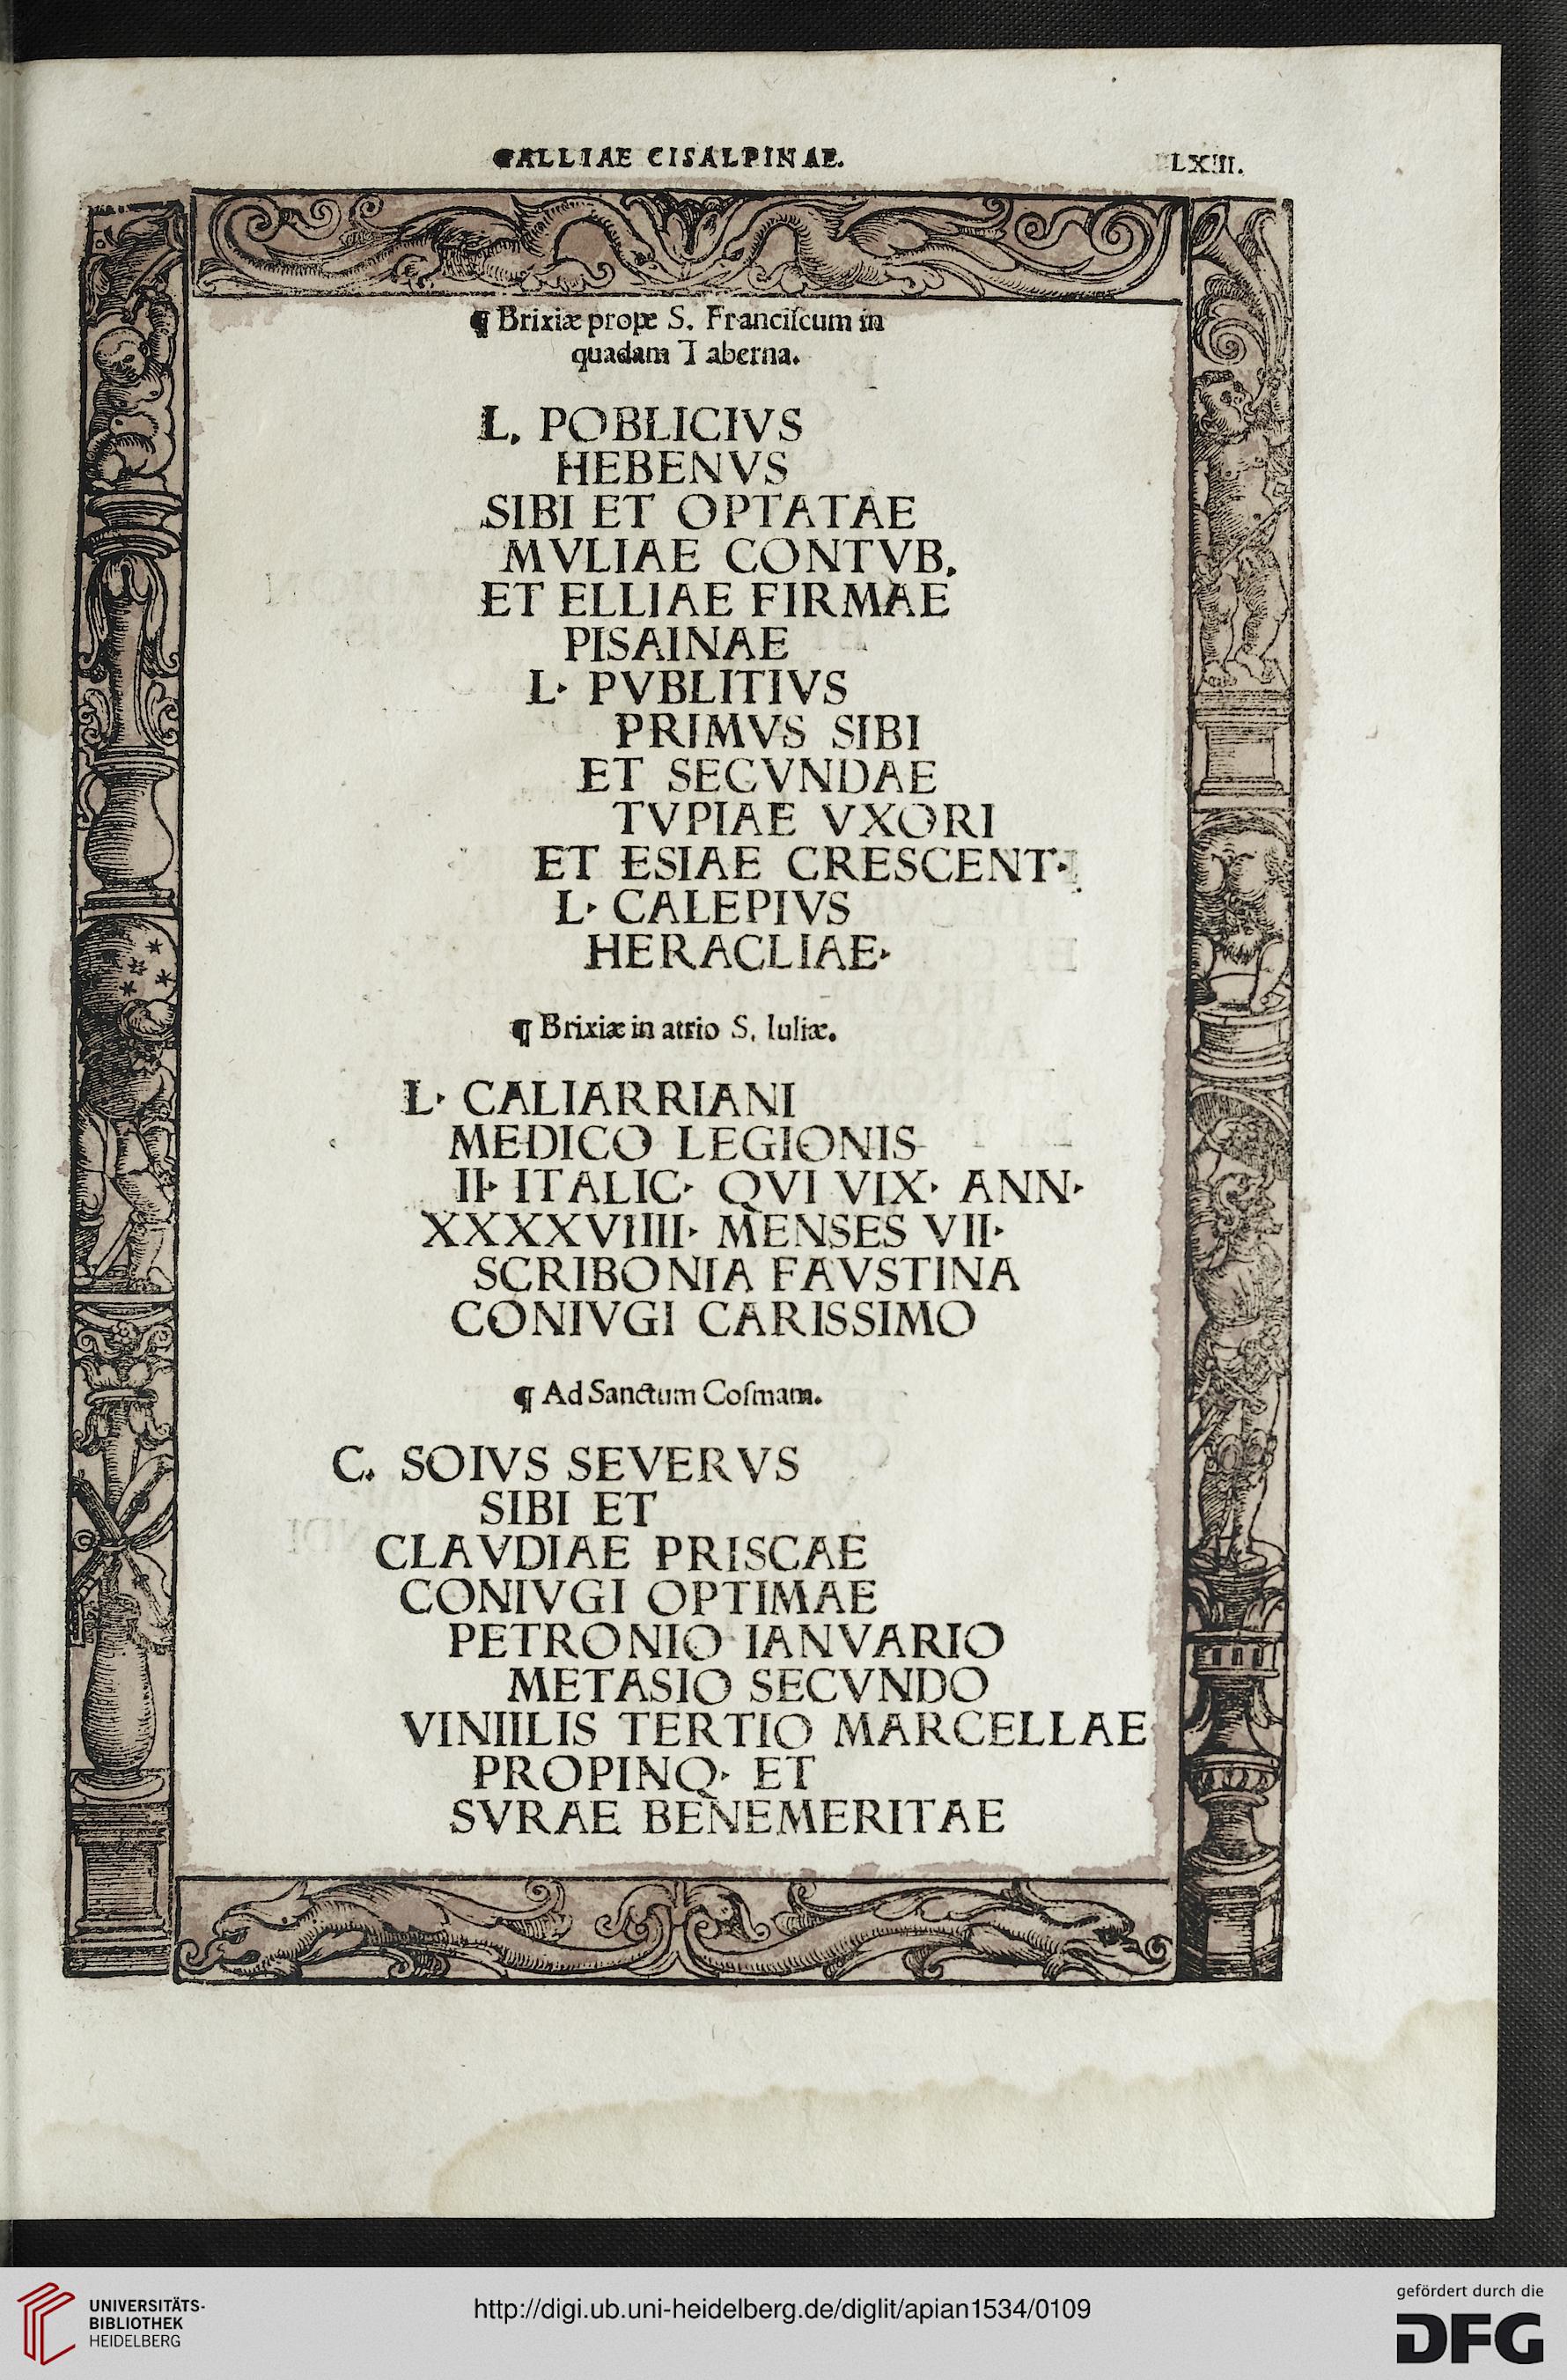 GALLIAE CISALPINAE.
LXIII.
¶ Brixiæ prope S. Franciſcum in
quadam Taberna.
L. POBLICIVS
HEBENVS
SIBI ET OPTATAE
MVLIAE CONTVB.
ET ELLIAE FIRMAE
PISAINAE
L· PVBLITIVS
PRIMVS SIBI
ET SECVNDAE
TVPIAE VXORI
ET ESIAE CRESCENT·
L· CALEPIVS
HERACLIAE·
¶ Brixiæ in atrio S. Iuliæ.
L· CALIARRIANI
MEDICO LEGIONIS
II· ITALIC· QVI VIX· ANN·
XXXXVIIII· MENSES VII·
SCRIBONIA FAVSTINA
CONIVGI CARISSIMO
¶ Ad Sanctum Coſmam.
C. SOIVS SEVERVS
SIBI ET
CLAVDIAE PRISCAE
CONIVGI OPTIMAE
PETRONIO IANVARIO
METASIO SECVNDO
VINIILIS TERTIO MARCELLAE
PROPINQ· ET
SVRAE BENEMERITAE
UNIVERSITÄTS-
BIBLIOTHEK
HEIDELBERG
http://digi.ub.uni-heidelberg.de/diglit/apian1534/0109
gefördert durch die
DFG